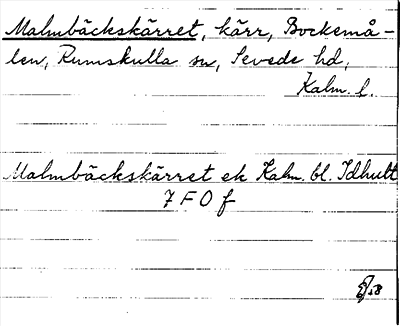 Malmbäckskärret, kärr, Bockemå-
len, Rumskulla sn, Sevede hd,
Kalm. l.
Malmbäckskärret ek Kalm. bl. Idhult
7 F 0 f